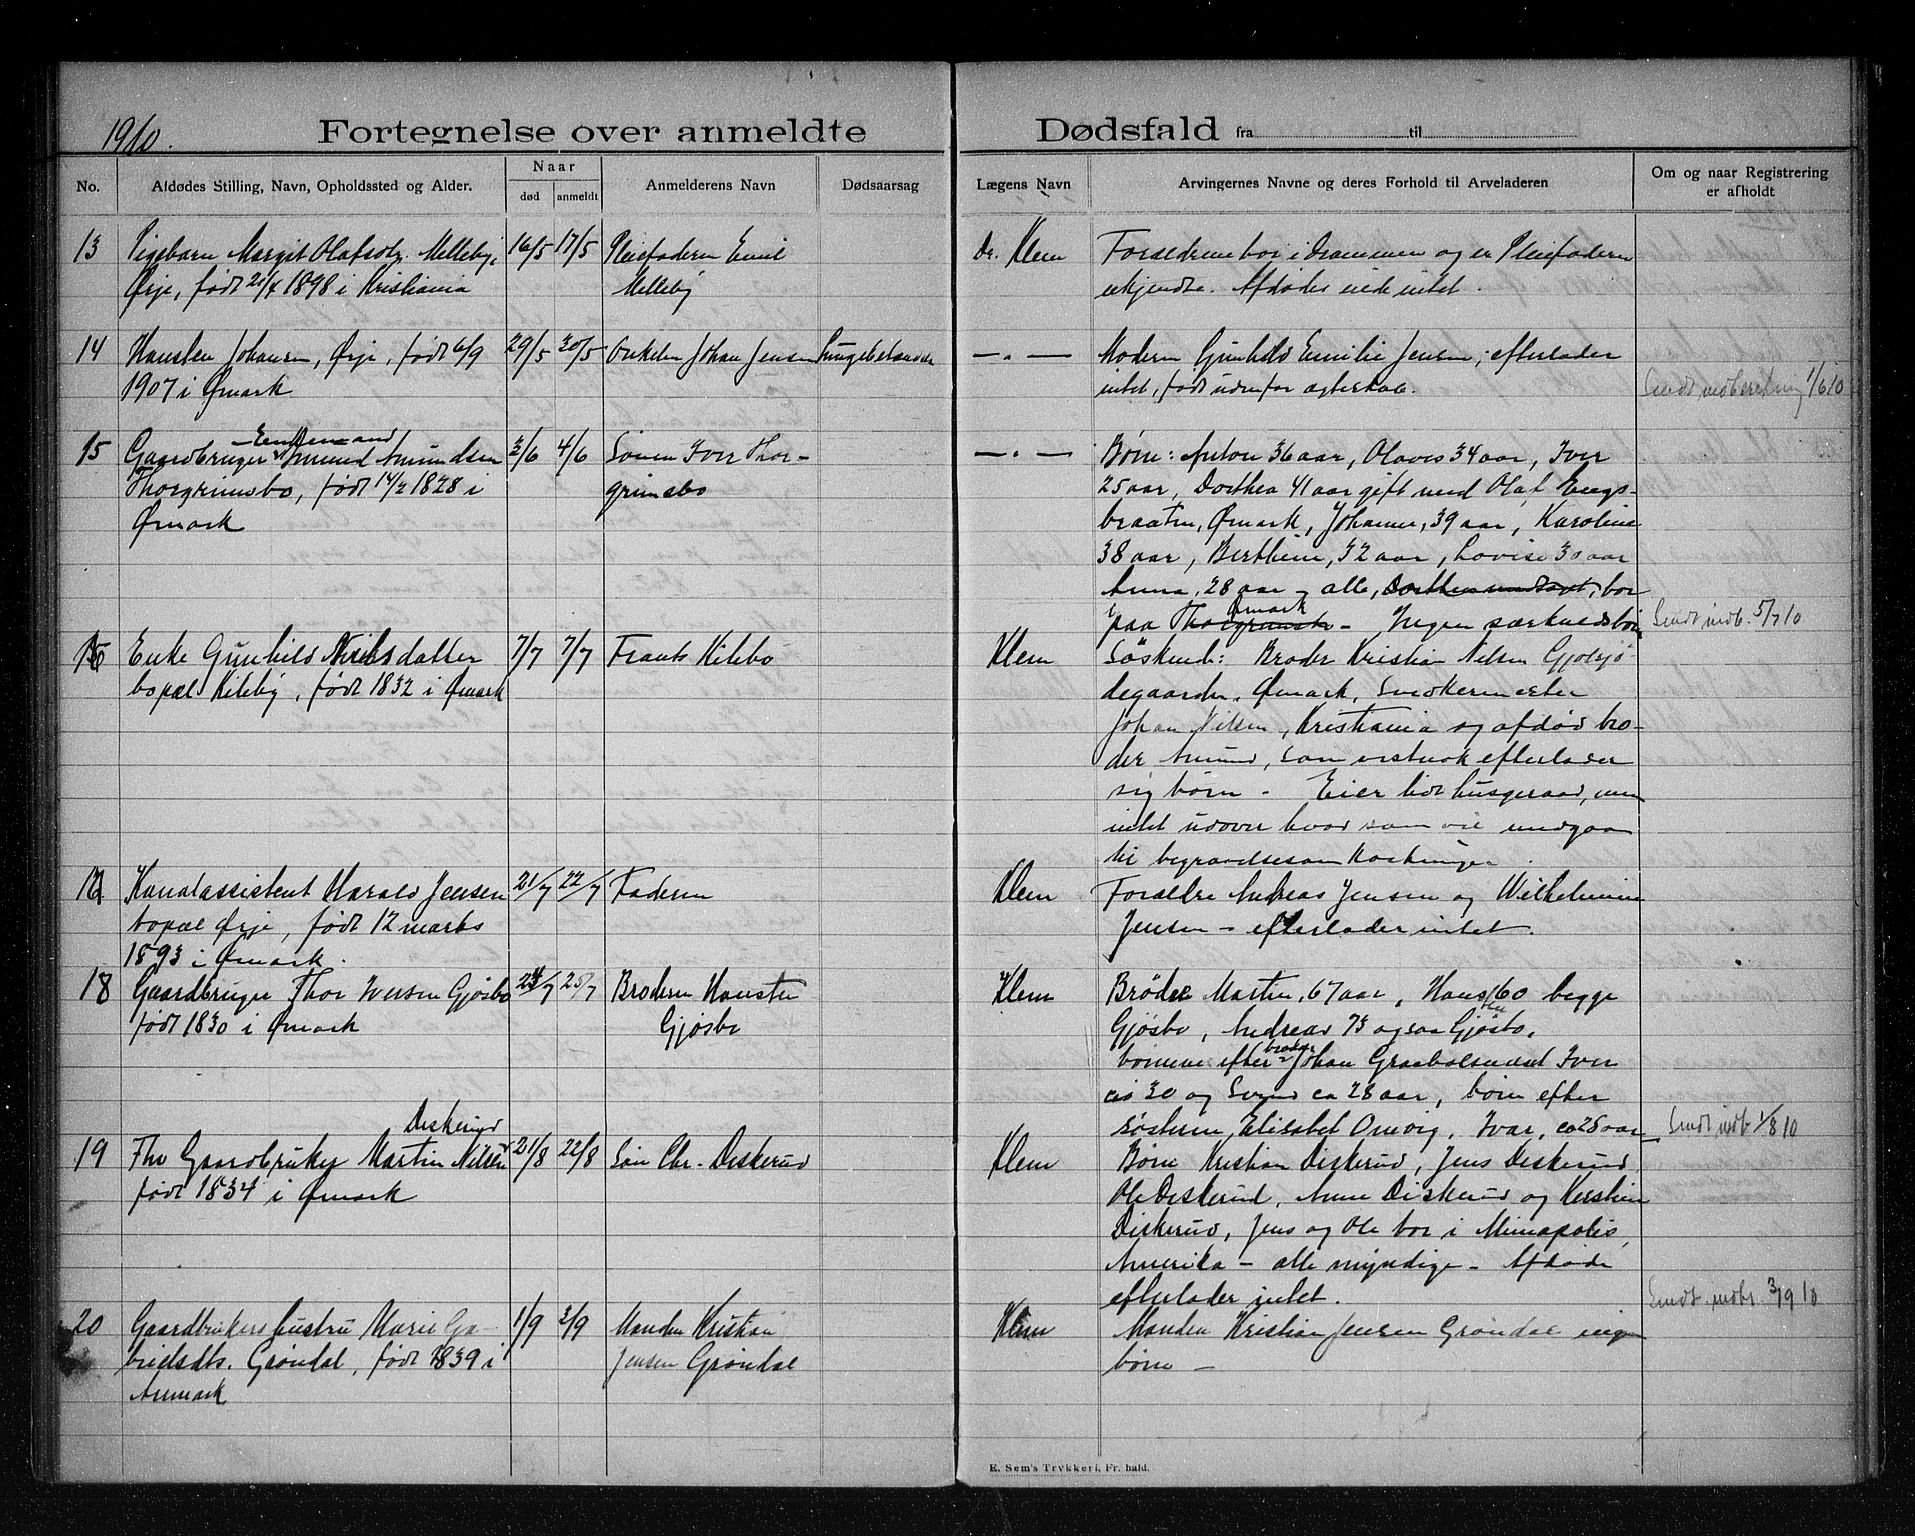 1910.
Fortegnelse over anmeldte Dødsfald fra til
No.
Afdødes Stilling, Navn, Opholdssted og Alder.
Naar
død
anmeldt
Anmelderens Navn
Dødsaarsag
Lægens Navn
Arvingernes Navne og deres Forhold til Arveladeren
Om og naar Registrering
er afholdt
13
Pigebarn Margit Olafsdtr. Melleby,
Ørje, født 21/4 1898 i Kristiania
16/5
17/5
Pleiefaderen Emil
Melleby
Dr. Klem
Forældrene bor i Drammen og er Pleiefaderen
ukjendte. Afdøde eiede intet.
14
Hansten Johansen, Ørje, født 6/9
1907 i Ømark
29/5
30/5
Onkelen Johan Jensen
Lungebetændelse
— . —
Moderen Gunhild Emilie Jensen; efterlader
intet, født udenfor ægteskab.
Sendt indberetning 1/6 10
15
Enkemand
Gaardbruger Amund Amundsen
Thorgrimsbo, født 14/2 1828 i
Ømark
3/6
4/6
Sønnen Iver Thor-
grimsbo
— . —
Børn: Anton 36 aar, Olaves 34 aar, Iver
25 aar, Dorthea 41 aar gift med Olaf Engs-
braaten, Ømark, Johanne, 39 aar, Karoline
38 aar, Berthine, 32 aar, Lovise 30 aar
Anna, 28 aar – alle, Dorthea undtagt, bor
paa Thorgrimsbo Ømark – Ingen særkuldsbørn
Sendt indb. 5/7 10
16
Enke Gunhild Nielsdatter
bopæl Kileby, født 1832 i Ømark
7/7
7/7
Frants Kilebo
Klem
Søskende: Broder Kristian Nilsen Gjølsjø-
degaarden, Ømark, Snedkermester
Johan Nilsen, Kristiania og afdød bro-
der Amund, som vistnok efterlader
sig børn – Eier lidt husgeraad, men
intet udover hvad som vil medgaa
til begravelsesomkostninger.
17
Kanalassistent Harald Jensen
bopæl Ørje, født 12 marts
1893 i Ømark.
21/7
22/7
Faderen
Klem
Forældre Andreas Jensen og Wilhelmine
Jensen – efterlader intet.
18
Gaardbruger Thor Iversen Gjøsbo
født 1830 i Ømark
24/7
25/7
Broderen Hansten
Gjøsbo
Klem
Brødre Martin, 67 aar, Hansten 60 begge
Gjøsbo, Andreas 73 ogsaa Gjøsbo,
børnene efter broder Johan Graabølsnæset Iver
ca 30 og Svend ca 28 aar, børn efter
søsteren, Elisabet Omvig, Ivar, ca 25 aar
Sendt indb. 1/8 10
19
Diskerud
Fhv Gaardbruker Martin Nilsen
født 1834 i Ømark
21/8
22/8
Søn Chr. Diskerud
Klem
Børn Kristian Diskerud, Jens Diskerud
Ole Diskerud, Anne Diskerud og Kerstine
Diskerud, Jens og Ole bor i Minapolis,
Amerika – alle myndige – Afdøde
efterlader intet.
Sendt indb. 3/9 10
20
Gaardbrukers hustru Marie Ga-
brielsdtr. Grøndal, født 1839 i
Aremark
1/9
3/9
Manden Kristian
Jensen Grøndal
Klem
Manden Kristian Jensen Grøndal ingen
børn –
E. Sem's Trykkeri, Fr. hald.